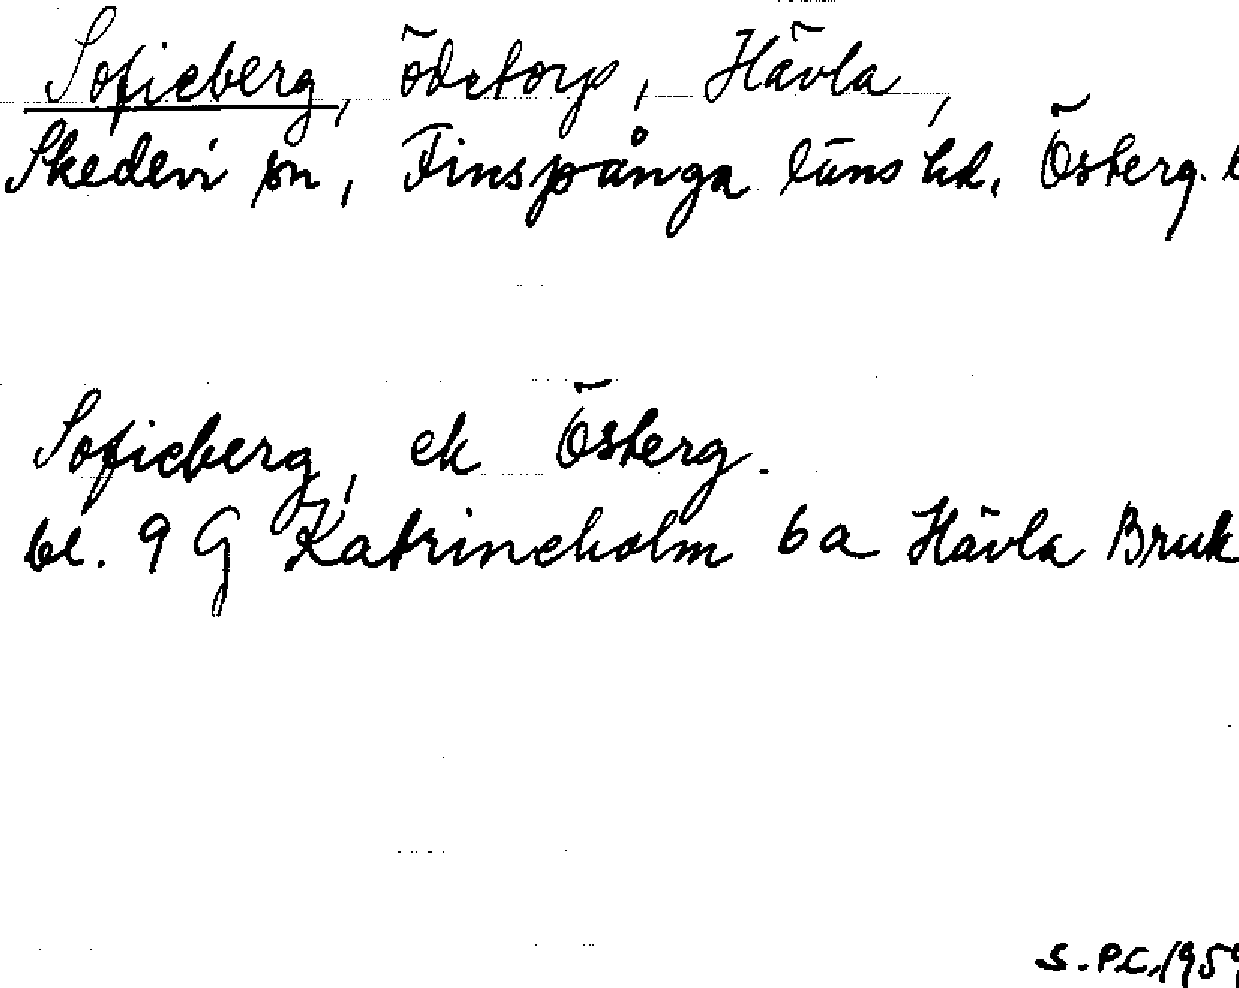 Sofieberg, ödetorp, Hävla,
Skedevi sn, Finspånga läns hd, Österg. l
Sofieberg, ek Österg.
bl. 9 G Katrineholm 6a Hävla Bruk
S.P.C. 1959